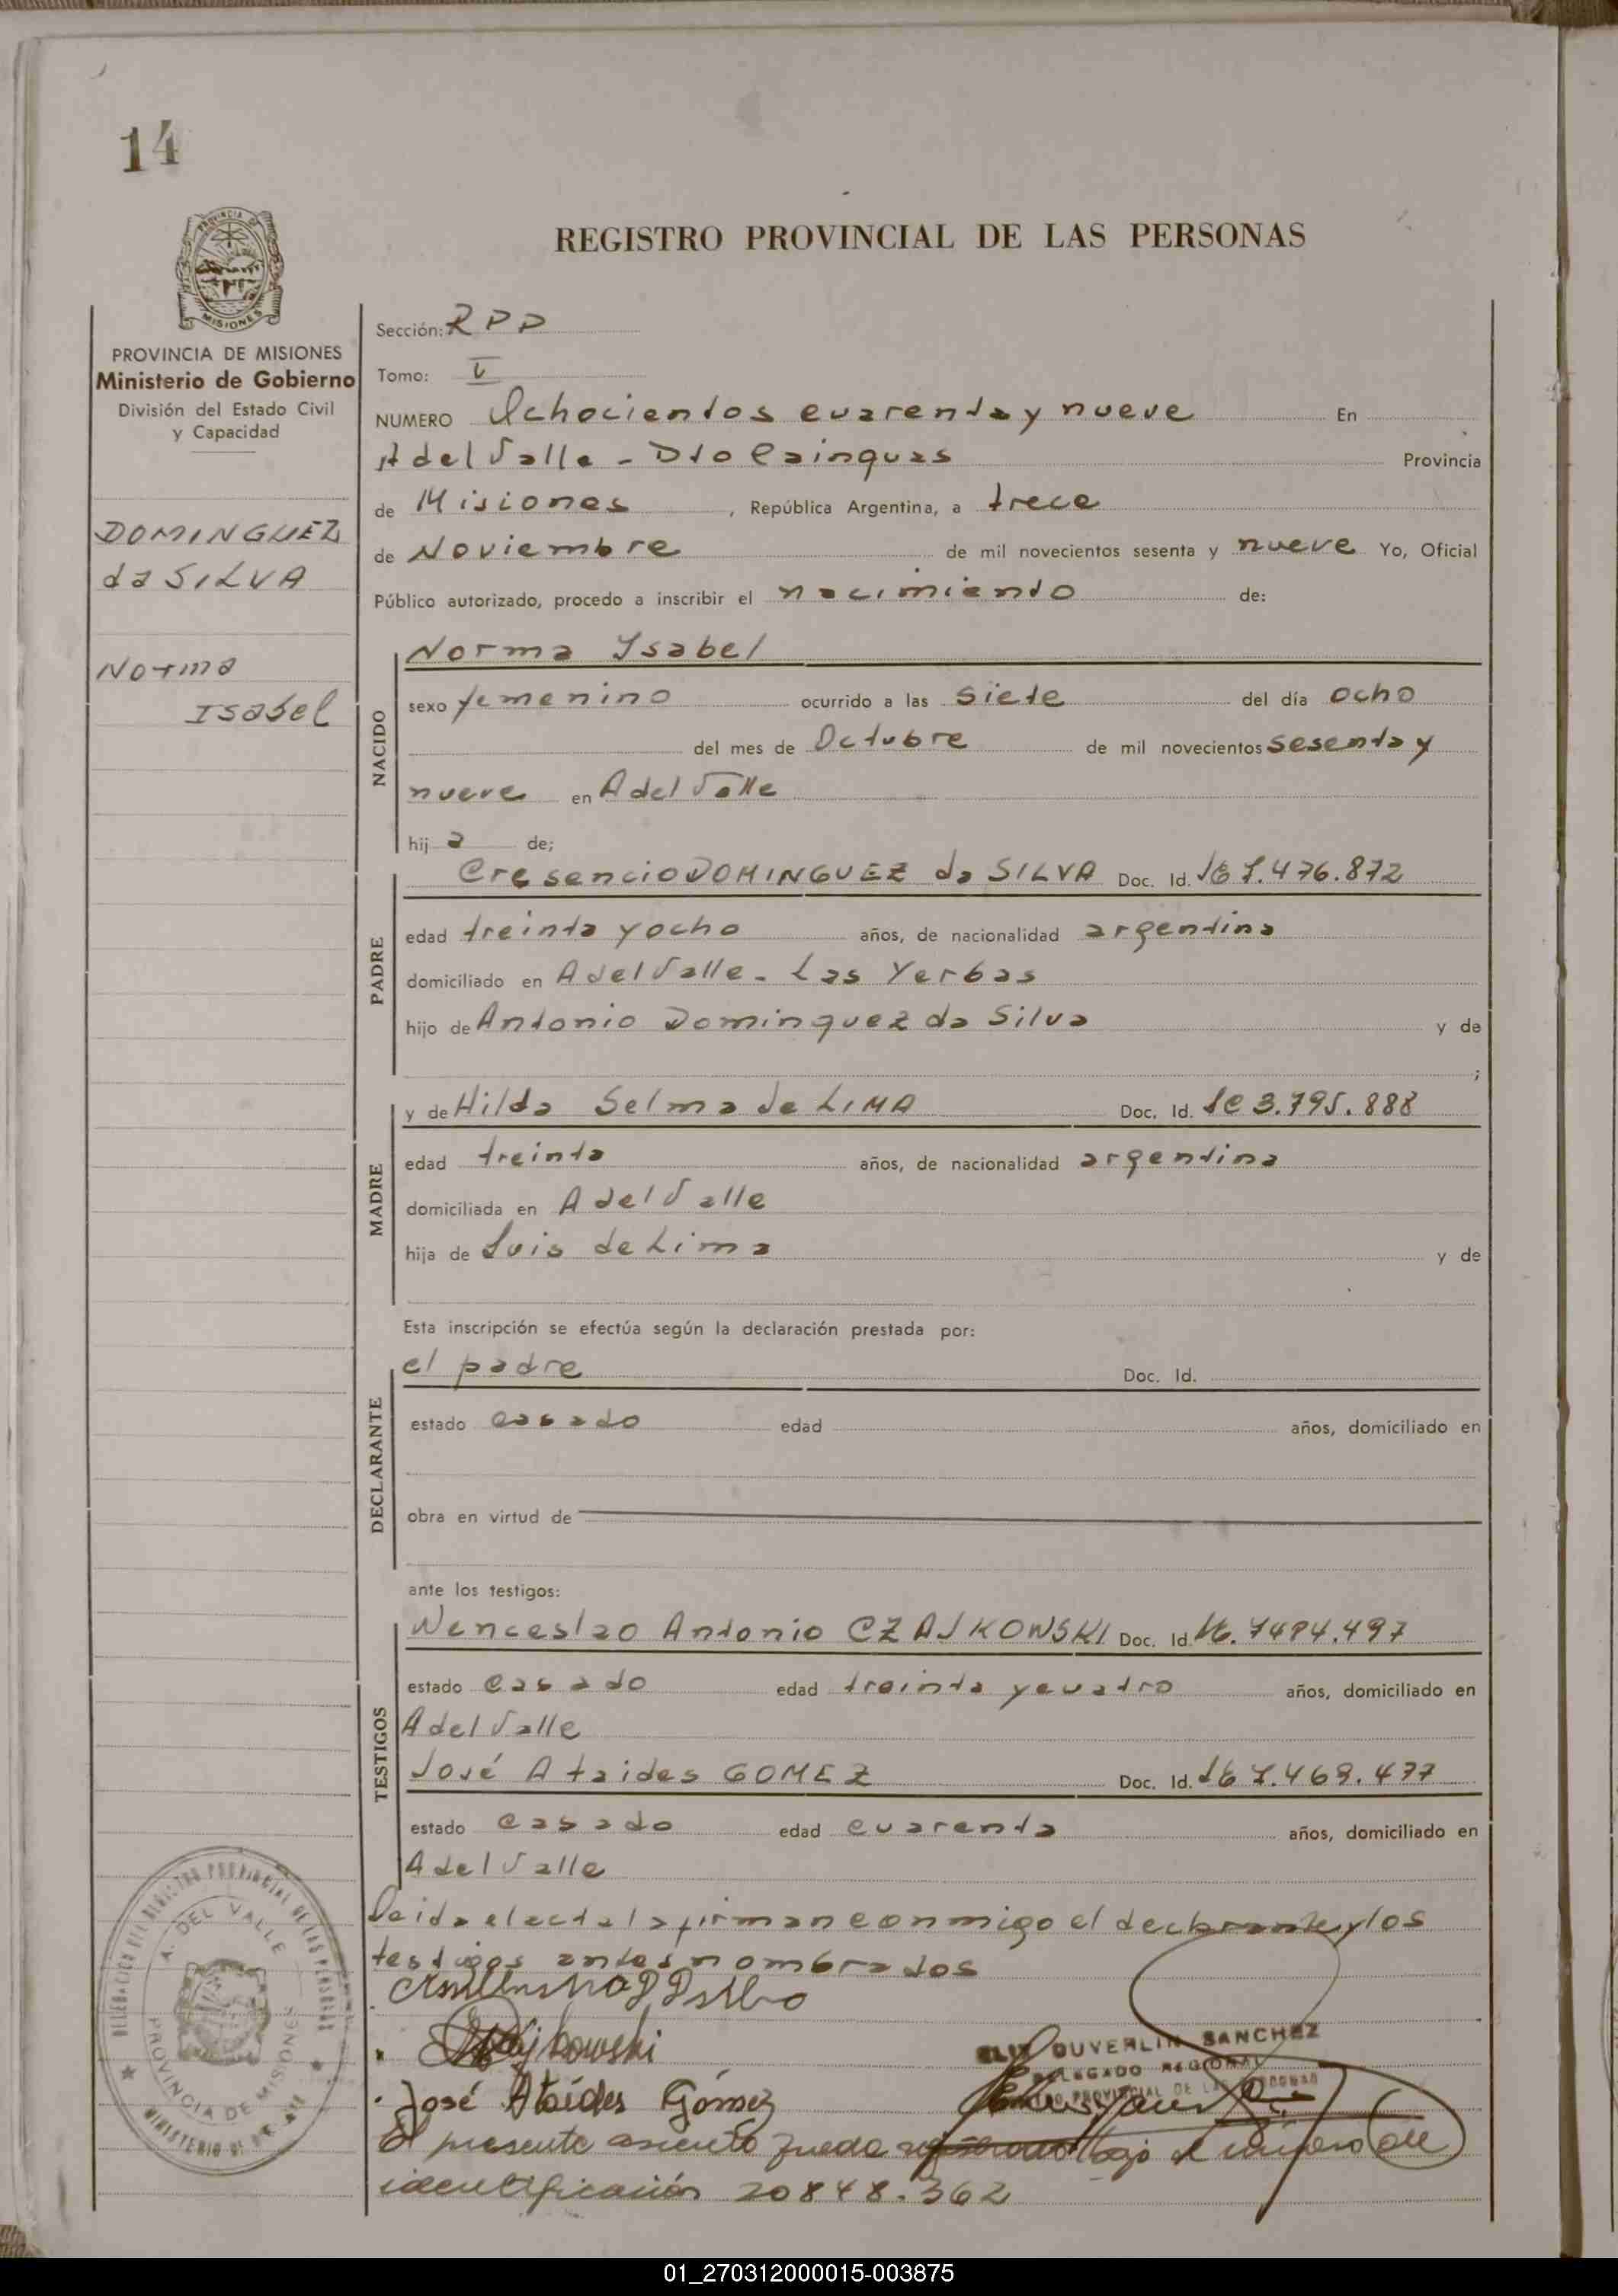 14
REGISTRO PROVINCIAL DE LAS PERSONAS
MISIONES
PROVINCIA DE MISIONES
Ministerio de Gobierno
División del Estado Civil
y Capacidad
DOMINGUEZ
da SILVA
Norma
Isabel
Sección: RPP
Tomo:
NUMERO Ochocientos cuarenta y nueve En
A del Valle - Dto Cainguas Provincia
de Misiones, República Argentina, a trece
de Noviembre de mil novecientos sesenta y nueve Yo, Oficial
Público autorizado, procedo a inscribir el nacimiento de:
NACIDO
Norma Ysabel
sexo femenino ocurrido a las siete del día ocho
del mes de Octubre de mil novecientos sesenta y
nueve en A del Valle
hij a de;
PADRE
Cresencio DOMINGUEZ da SILVA Doc. Id. 7.476.872
edad treinta y ocho años, de nacionalidad argentina
domiciliado en A del Valle - Las Yerbas
hijo de Antonio Dominguez da Silva y de
;
MADRE
y de Hilda Selma de LIMA Doc. Id. 3.795.888
edad treinta años, de nacionalidad argentina
domiciliada en A del Valle
hija de Luis de Lima y de
Esta inscripción se efectúa según la declaración prestada por:
DECLARANTE
el padre Doc. Id.
estado casado edad años, domiciliado en
obra en virtud de
ante los testigos:
TESTIGOS
Wenceslao Antonio CZAJKOWSKI Doc. Id.
estado casado edad treinta y cuatro años, domiciliado en
A del Valle
José Ataides GOMEZ Doc. Id. 7.469.477
estado casado edad cuarenta años, domiciliado en
A del Valle
Leida el acta la firman conmigo el declarante y los
testigos antes nombrados
José Ataídes Gómez
DUVERLIN SANCHEZ
DELEGADO REGIONAL
PROVINCIAL DE LAS PERSONAS
El presente asiento queda registrado bajo el número de
identificación 20848.362
DELEGACION DEL REGISTRO PROVINCIAL DE LAS PERSONAS
A. DEL VALLE
PROVINCIA DE MISIONES
01_270312000015-003875